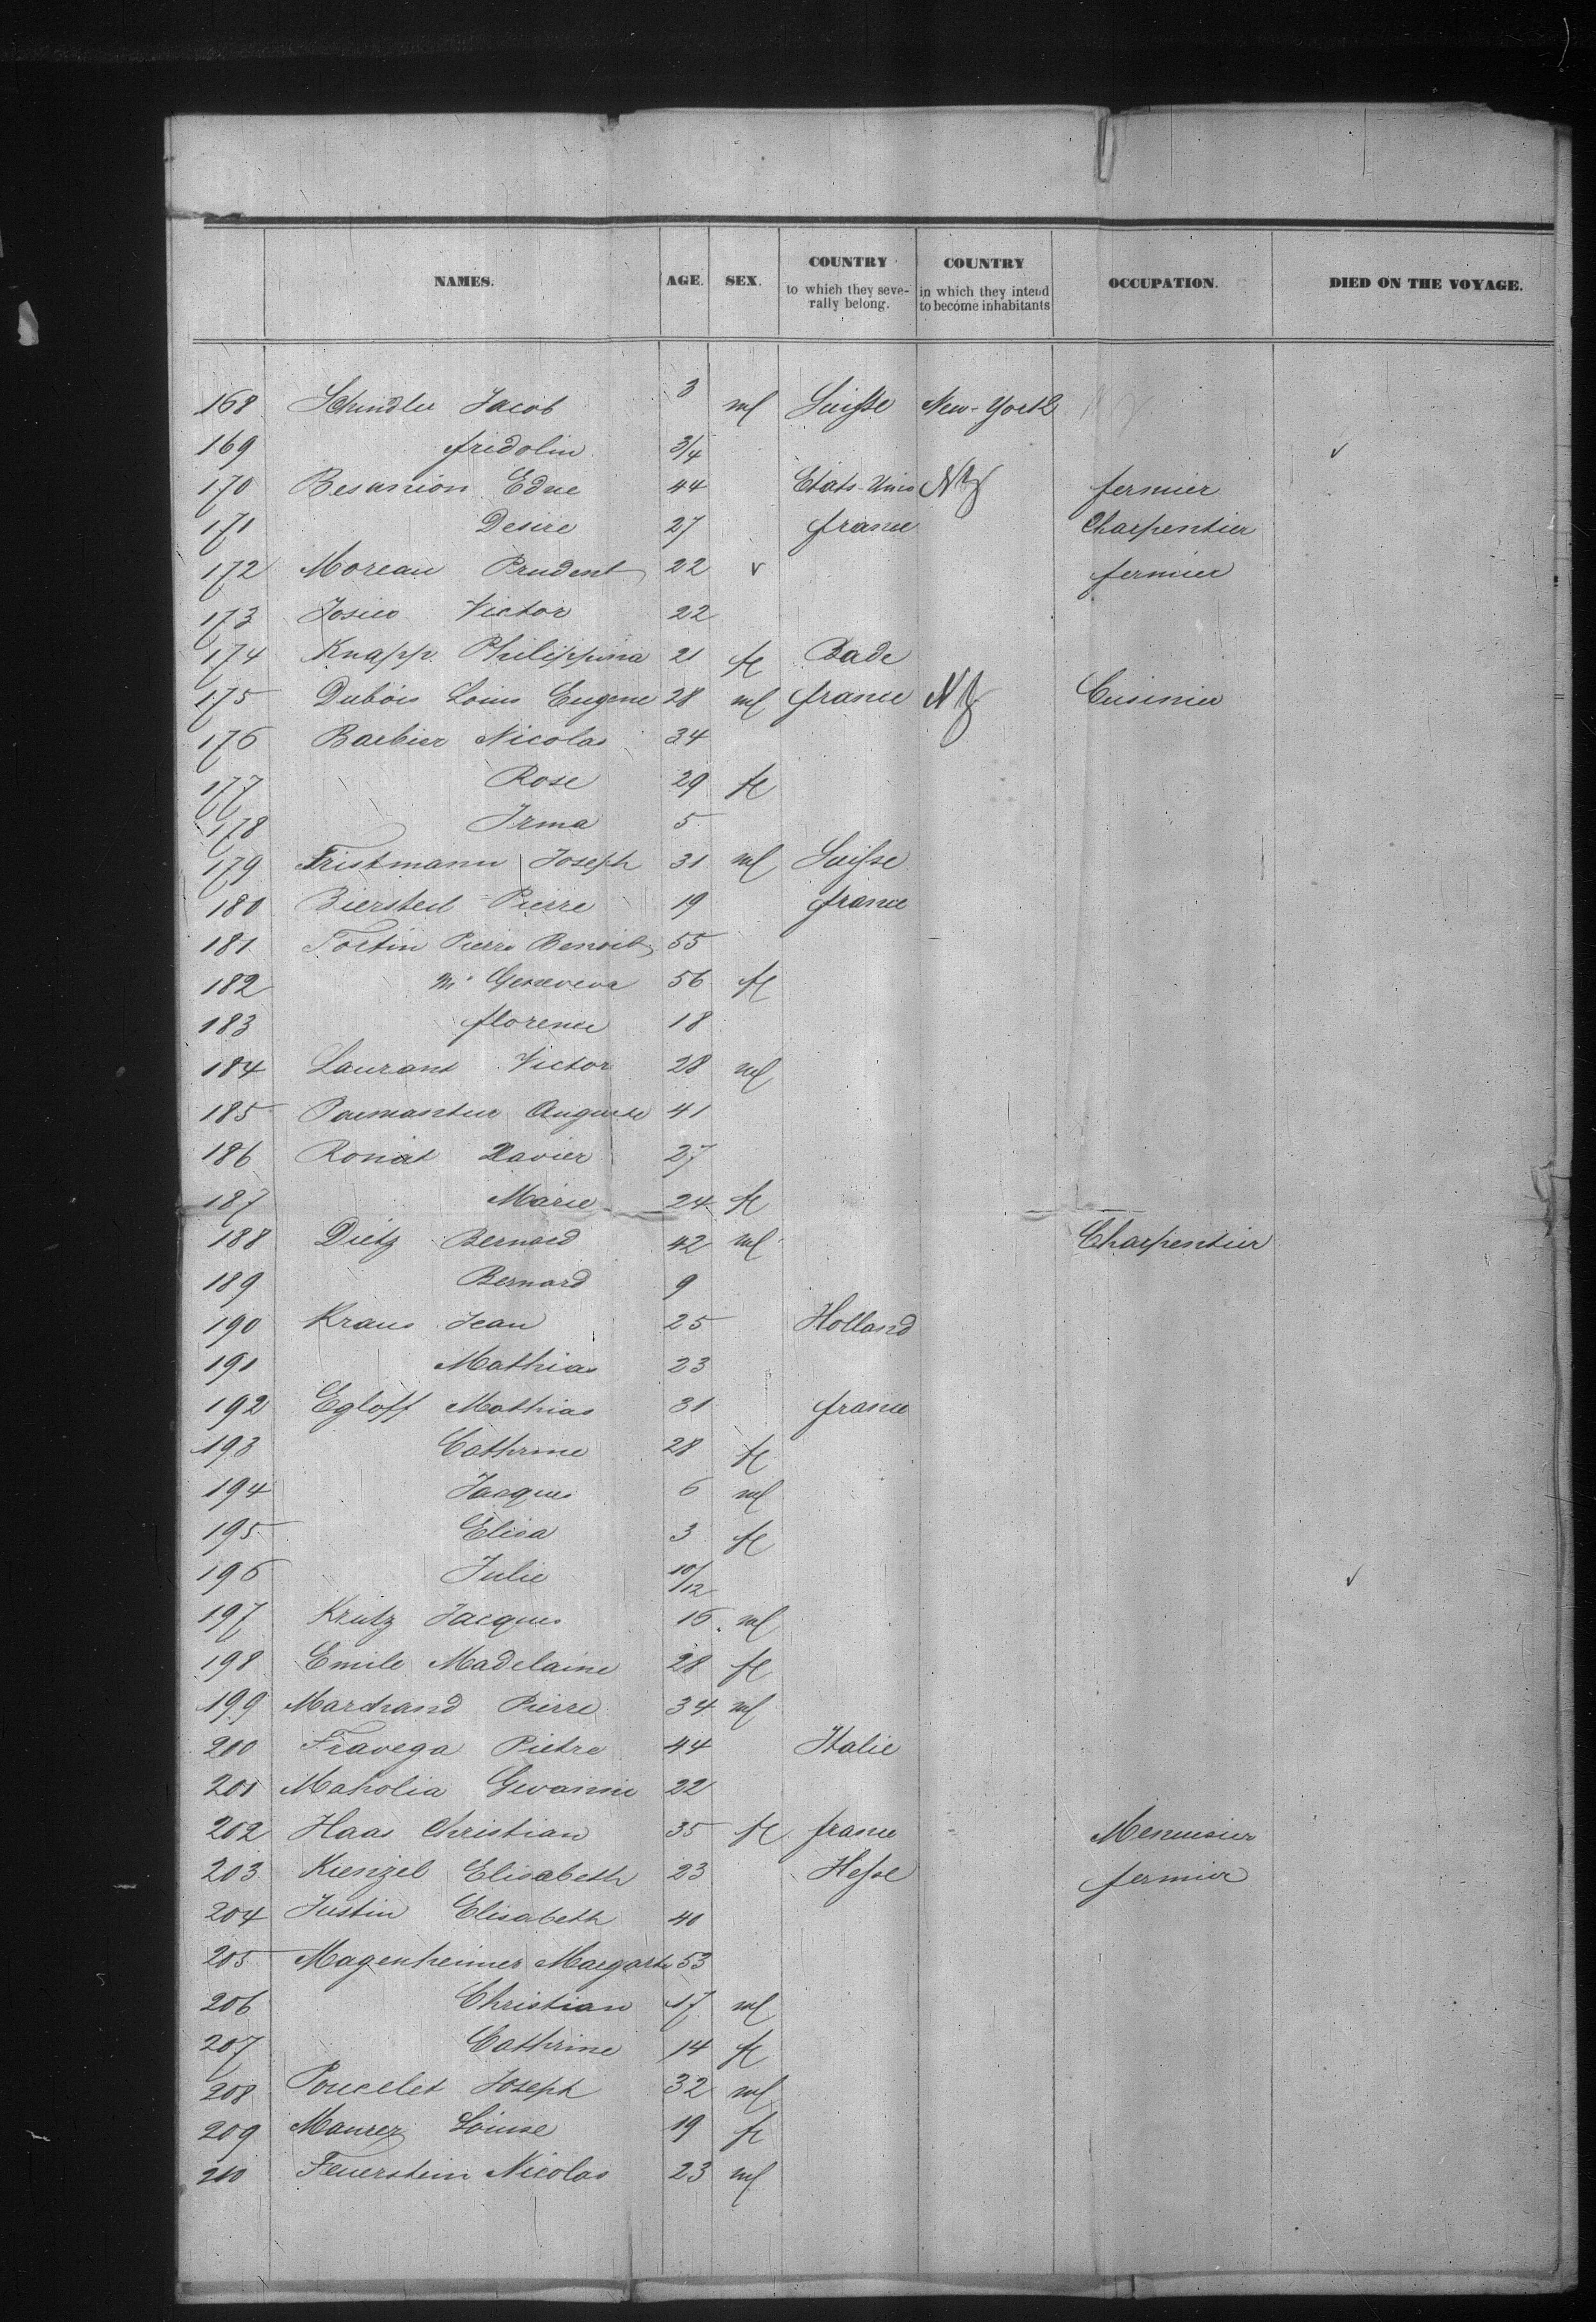 NAMES. AGE. SEX. COUNTRY to which they severally belong. COUNTRY in which they intend to become inhabitants OCCUPATION. DIED ON THE VOYAGE.
168 Schindler Jacob 3 ml Suisse New-York
169 fridolin 3/4 v
170 Besanion Edue 44 Etats-Unis NY fermier
171 Desire 27 france Charpentier
172 Moreau Prudent 22 v fermier
173 Josier Victor 22
174 Knapp Philippina 21 fl Bade
175 Dubois Louis Eugene 28 ml france NY Cuisinier
176 Barbier Nicolas 34
177 Rose 29 fl
178 Irma 5
179 Tristmann Joseph 31 ml Suisse
180 Biersted Pierre 19 france
181 Fortin Pierre Benoit 55
182 M. Geneveve 56 fl
183 florence 18
184 Laurant Victor 28 ml
185 Auguste 41
186 Roniat Xavier 27
187 Marie 24 fl
188 Dietz Bernard 42 ml Charpentier
189 Bernard 9
190 Kraus Jean 25 Holland
191 Mathias 23
192 Egloff Mathias 31 france
193 Cathrine 28 fl
194 Jacques 6 ml
195 Elisa 3 fl
196 Julie 10/12 v
197 Krutz Jacques 16 ml
198 Emile Madelaine 28 fl
199 Marchand Pierre 34 ml
200 Fravega Pietro 44 Italie
201 Maholia Gevannie 22
202 Haas Christian 35 fl france Menuisier
203 Kienzel Elisabeth 23 Hesse fermier
204 Justin Elisabeth 40
205 Magenheimer Margarte 53
206 Christian 17 ml
207 Cathrine 14 fl
208 Poucelet Joseph 32 ml
209 Maurer Louise 19 fl
210 Feuerstein Nicolas 23 ml